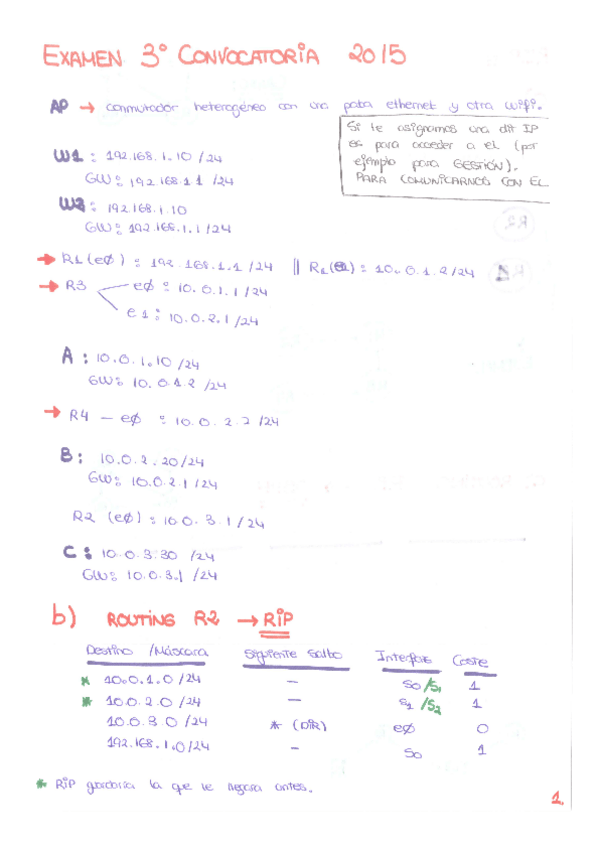 EXAMEN 3º CONVOCATORIA 2015
AP → conmutador heterogéneo con una pata ethernet y otra wifi.
Si te asignamos una dir IP
es para acceder a el (por
ejemplo para GESTIÓN).
PARA COMUNICARNOS CON EL
W1 : 192.168.1.10 /24
GW: 192.168.1.1 /24
W2 : 192.168.1.10
GW: 192.168.1.1 /24
→ R1 (eø) : 192.168.1.1 /24 || R1 (e1) : 10.0.1.2 /24
→ R3 eø : 10.0.1.1 /24
e1 : 10.0.2.1 /24
A : 10.0.1.10 /24
GW: 10.0.1.2 /24
→ R4 — eø : 10.0.2.2 /24
B : 10.0.2.20 /24
GW: 10.0.2.1 /24
R2 (eø) : 10.0.3.1 /24
C : 10.0.3.30 /24
GW: 10.0.3.1 /24
b) ROUTING R2 → RIP
Destino /Máscara Siguiente Salto Interfaz Coste
* 10.0.1.0 /24 — So /S1 1
* 10.0.2.0 /24 — S1 /S2 1
10.0.3.0 /24 * (DIR) eø 0
192.168.1.0 /24 — So 1
* RIP guardaría la que le llegara antes.
1.